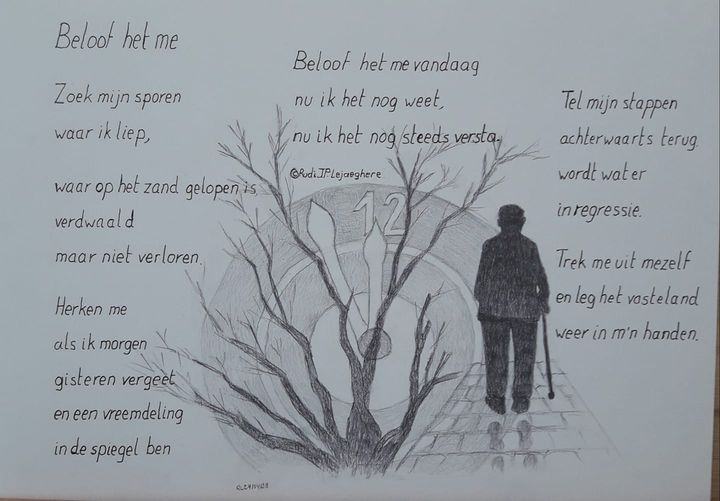 Beloof het me
Zoek mijn sporen
waar ik liep,
waar op het zand gelopen is
verdwaald
maar niet verloren.
Herken me
als ik morgen
gisteren vergeet
en een vreemdeling
in de spiegel ben
Beloof het me vandaag
nu ik het nog weet,
nu ik het nog steeds versta.
©Rudi.J.P.Lejaeghere
12
Tel mijn stappen
achterwaarts terug.
wordt water
in regressie.
Trek me uit mezelf
en leg het vasteland
weer in m'n handen.